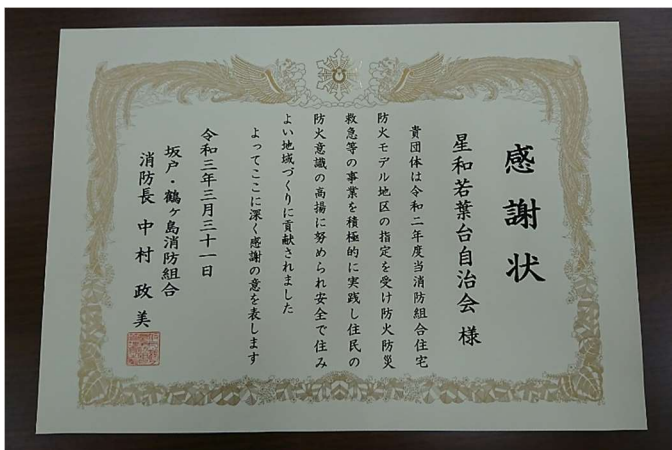 感謝状
星和若葉台自治会 様
貴団体は令和二年度当消防組合住宅
防火モデル地区の指定を受け防火防災
救急等の事業を積極的に実践し住民の
防火意識の高揚に努められ安全で住み
よい地域づくりに貢献されました
よってここに深く感謝の意を表します
令和三年三月三十一日
坂戸・鶴ヶ島消防組合
消防長 中村政美